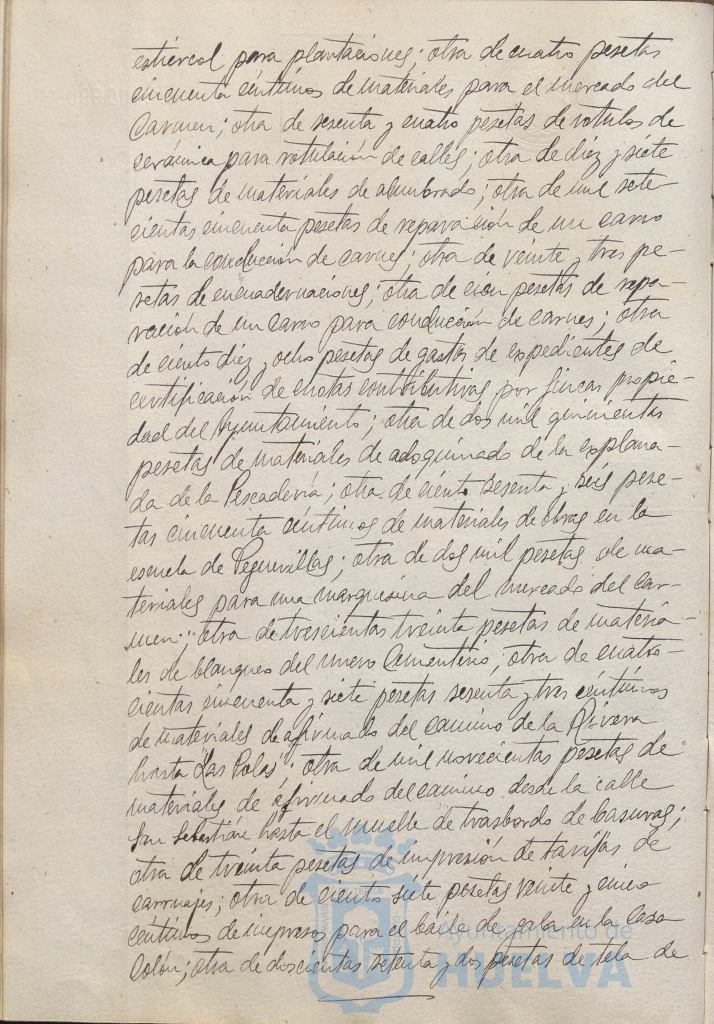 estiércol para plantaciones; otra de cuatro pesetas
cincuenta céntimos de materiales para el mercado del
Carmen; otra de sesenta y cuatro pesetas de rotulos de
cerámica para rotulación de calles; otra de diez y siete
pesetas de materiales de alumbrado; otra de mil sete-
cientas cincuenta pesetas de reparación de un carro
para la conducción de carnes; otra de veinte y tres pe-
setas de encuadernaciones; otra de cien pesetas de repa-
ración de un carro para conducción de carnes; otra
de ciento diez y ocho pesetas de gastos de expedientes de
certificación de cuotas contributivas por fincas propie-
dad del Ayuntamiento; otra de dos mil quinientas
pesetas de materiales de adoquinado de la explana-
da de la Pescadería; otra de ciento sesenta y seis pese-
tas cincuenta céntimos de materiales de obras en la
escuela de Peguerillas; otra de dos mil pesetas de ma-
teriales para una marquesina del mercado del Car-
men; otra de trescientas treinta pesetas de materia-
les de blanqueo del nuevo Cementerio, otra de cuatro-
cientas cincuenta y siete pesetas sesenta y tres céntimos
de materiales de afirmado del camino de la Rivera
hasta "Las Colas"; otra de mil novecientas pesetas de
materiales de afirmado del camino desde la calle
San Sebastián hasta el muelle de trasbordo de basuras;
otra de treinta pesetas de impresión de tarifas de
carruajes; otra de ciento siete pesetas veinte y cinco
céntimos de impresos para el baile de gala en la Casa
Colón; otra de doscientas setenta y dos pesetas de tela de
Ayuntamiento de
HUELVA